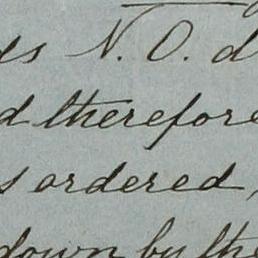 N. O. d
d therefore
s ordered,
down by the